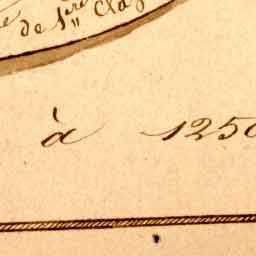 de 1ère Clas
à 1250